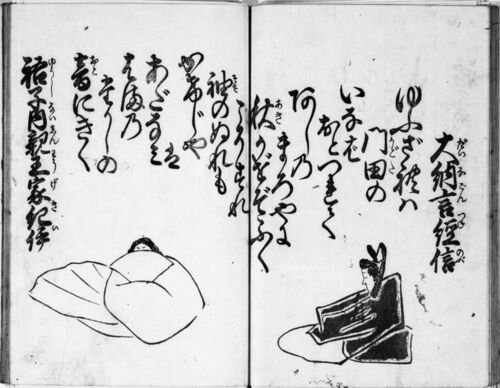 大納言經信
ゆふざれハ
門田の
いなば
おとつれて
あしの
まろやに
秋かぜぞふく
祐子内親王家紀伊
音にきく
たかしの
はまの
あだなミは
かけじや
袖のぬれも
こそすれ